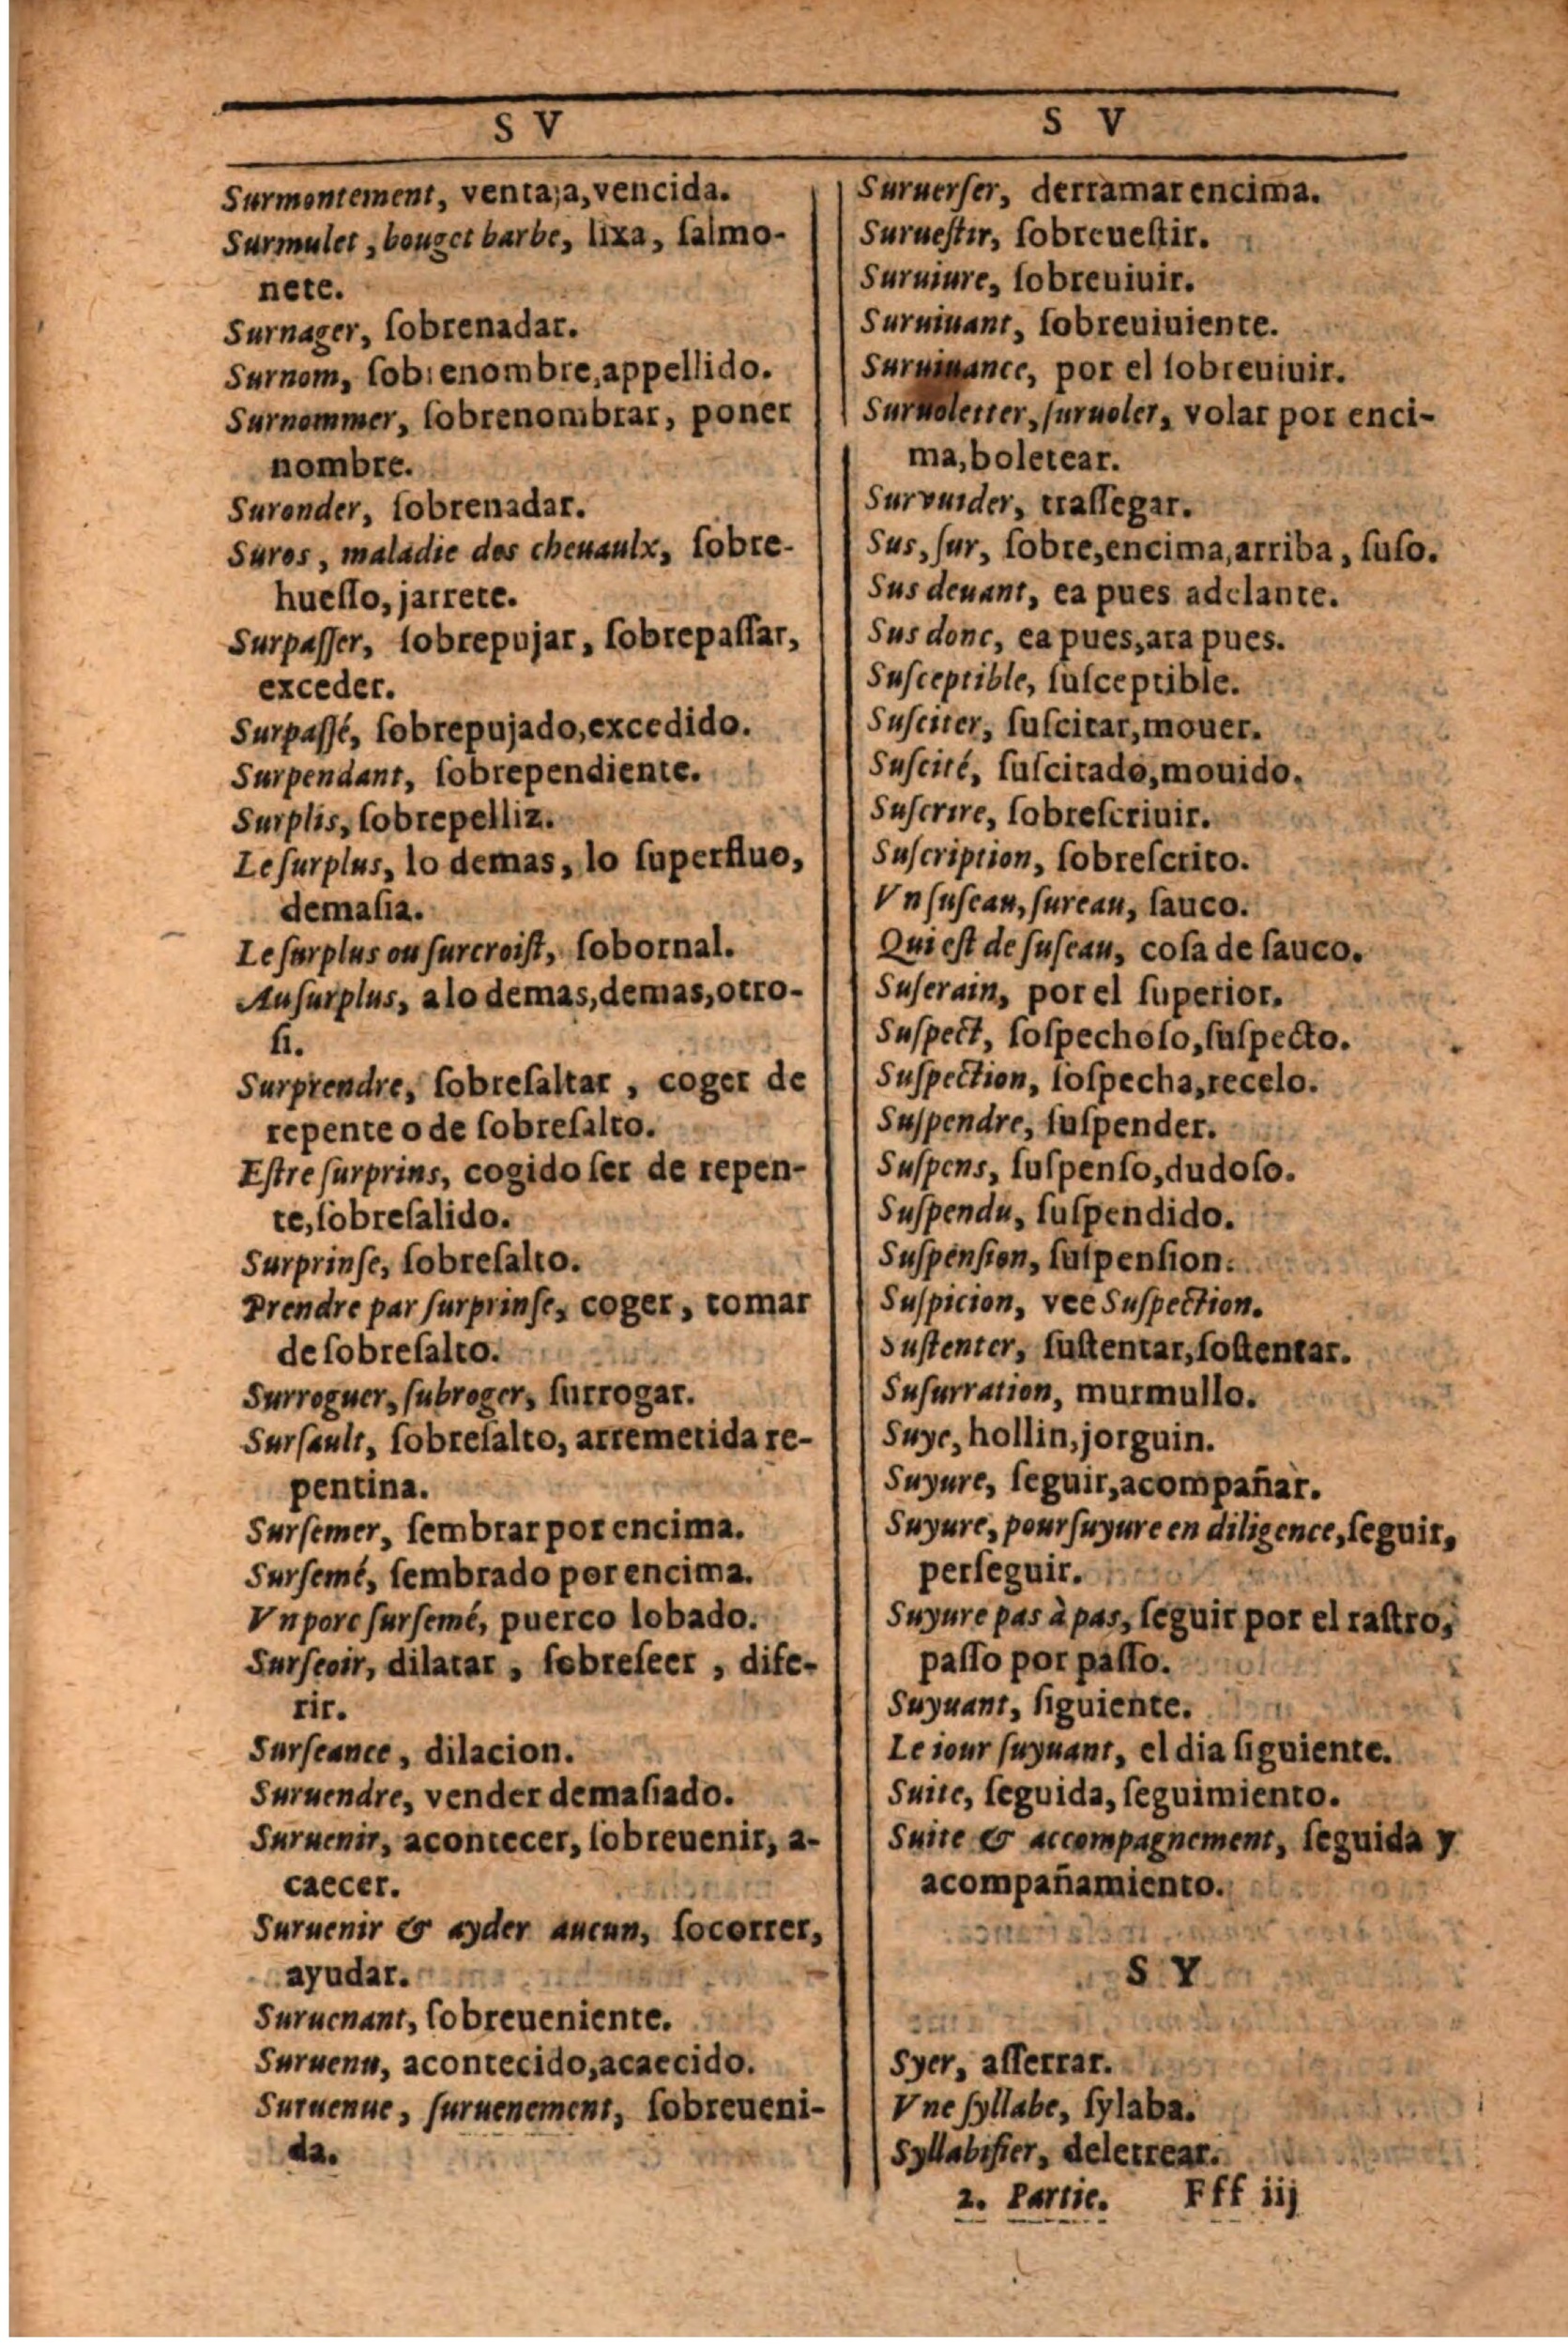 S V
Surmontement, ventaja, vencida.
Surmulet, bouget barbe, lixa, ſalmo-
nete.
Surnager, ſobrenadar.
Surnom, ſobrenombre, appellido.
Surnommer, ſobrenombrar, poner
nombre.
Suronder, ſobrenadar.
Suros, maladie des cheuaulx, ſobre-
hueſſo, jarrete.
Surpaſſer, ſobrepujar, ſobrepaſſar,
exceder.
Surpaſſé, ſobrepujado, excedido.
Surpendant, ſobrependiente.
Surplis, ſobrepelliz.
Le ſurplus, lo demas, lo ſuperfluo,
demaſia.
Le ſurplus ou ſurcroiſt, ſobornal.
Au ſurplus, a lo demas, demas, otro-
ſi.
Surprendre, ſobreſaltar, coger de
repente o de ſobreſalto.
Eſtre ſurprins, cogido ſer de repen-
te, ſobreſalido.
Surprinſe, ſobreſalto.
Prendre par ſurprinſe, coger, tomar
de ſobreſalto.
Surroguer, ſubroger, ſurrogar.
Surſault, ſobreſalto, arremetida re-
pentina.
Surſemer, ſembrar por encima.
Surſemé, ſembrado por encima.
Vn porc ſurſemé, puerco lobado.
Surſeoir, dilatar, ſobreſeer, dife-
rir.
Surſeance, dilacion.
Suruendre, vender demaſiado.
Suruenir, acontecer, ſobreuenir, a-
caecer.
Suruenir & ayder aucun, ſocorrer,
ayudar.
Suruenant, ſobreueniente.
Suruenu, acontecido, acaecido.
Suruenue, ſuruenement, ſobreueni-
da.
S V
Suruerſer, derramar encima.
Surueſtir, ſobreueſtir.
Suruiure, ſobreuiuir.
Suruiuant, ſobreuiuiente.
Suruiuance, por el ſobreuiuir.
Suruoletter, ſuruoler, volar por enci-
ma, boletear.
Survuider, traſſegar.
Sus, ſur, ſobre, encima, arriba, ſuſo.
Sus deuant, ea pues adelante.
Sus donc, ea pues, ara pues.
Suſceptible, ſuſceptible.
Suſciter, ſuſcitar, mouer.
Suſcité, ſuſcitado, mouido.
Suſcrire, ſobreſcriuir.
Suſcription, ſobreſcrito.
Vn ſuſeau, ſureau, ſauco.
Qui eſt de ſuſeau, coſa de ſauco.
Suſerain, por el ſuperior.
Suſpect, ſoſpechoſo, ſuſpecto.
Suſpection, ſoſpecha, recelo.
Suſpendre, ſuſpender.
Suſpens, ſuſpenſo, dudoſo.
Suſpendu, ſuſpendido.
Suſpenſion, ſuſpenſion.
Suſpicion, vee Suſpection.
Suſtenter, ſuſtentar, ſoſtentar.
Suſurration, murmullo.
Suye, hollin, jorguin.
Suyure, ſeguir, acompañar.
Suyure, pourſuyure en diligence, ſeguir,
perſeguir.
Suyure pas à pas, ſeguir por el raſtro,
paſſo por paſſo.
Suyuant, ſiguiente.
Le iour ſuyuant, el dia ſiguiente.
Suite, ſeguida, ſeguimiento.
Suite & accompagnement, ſeguida y
acompañamiento.
S Y
Syer, aſſerrar.
Vne ſyllabe, ſylaba.
Syllabifier, deletrear.
2. Partie. Fff iij